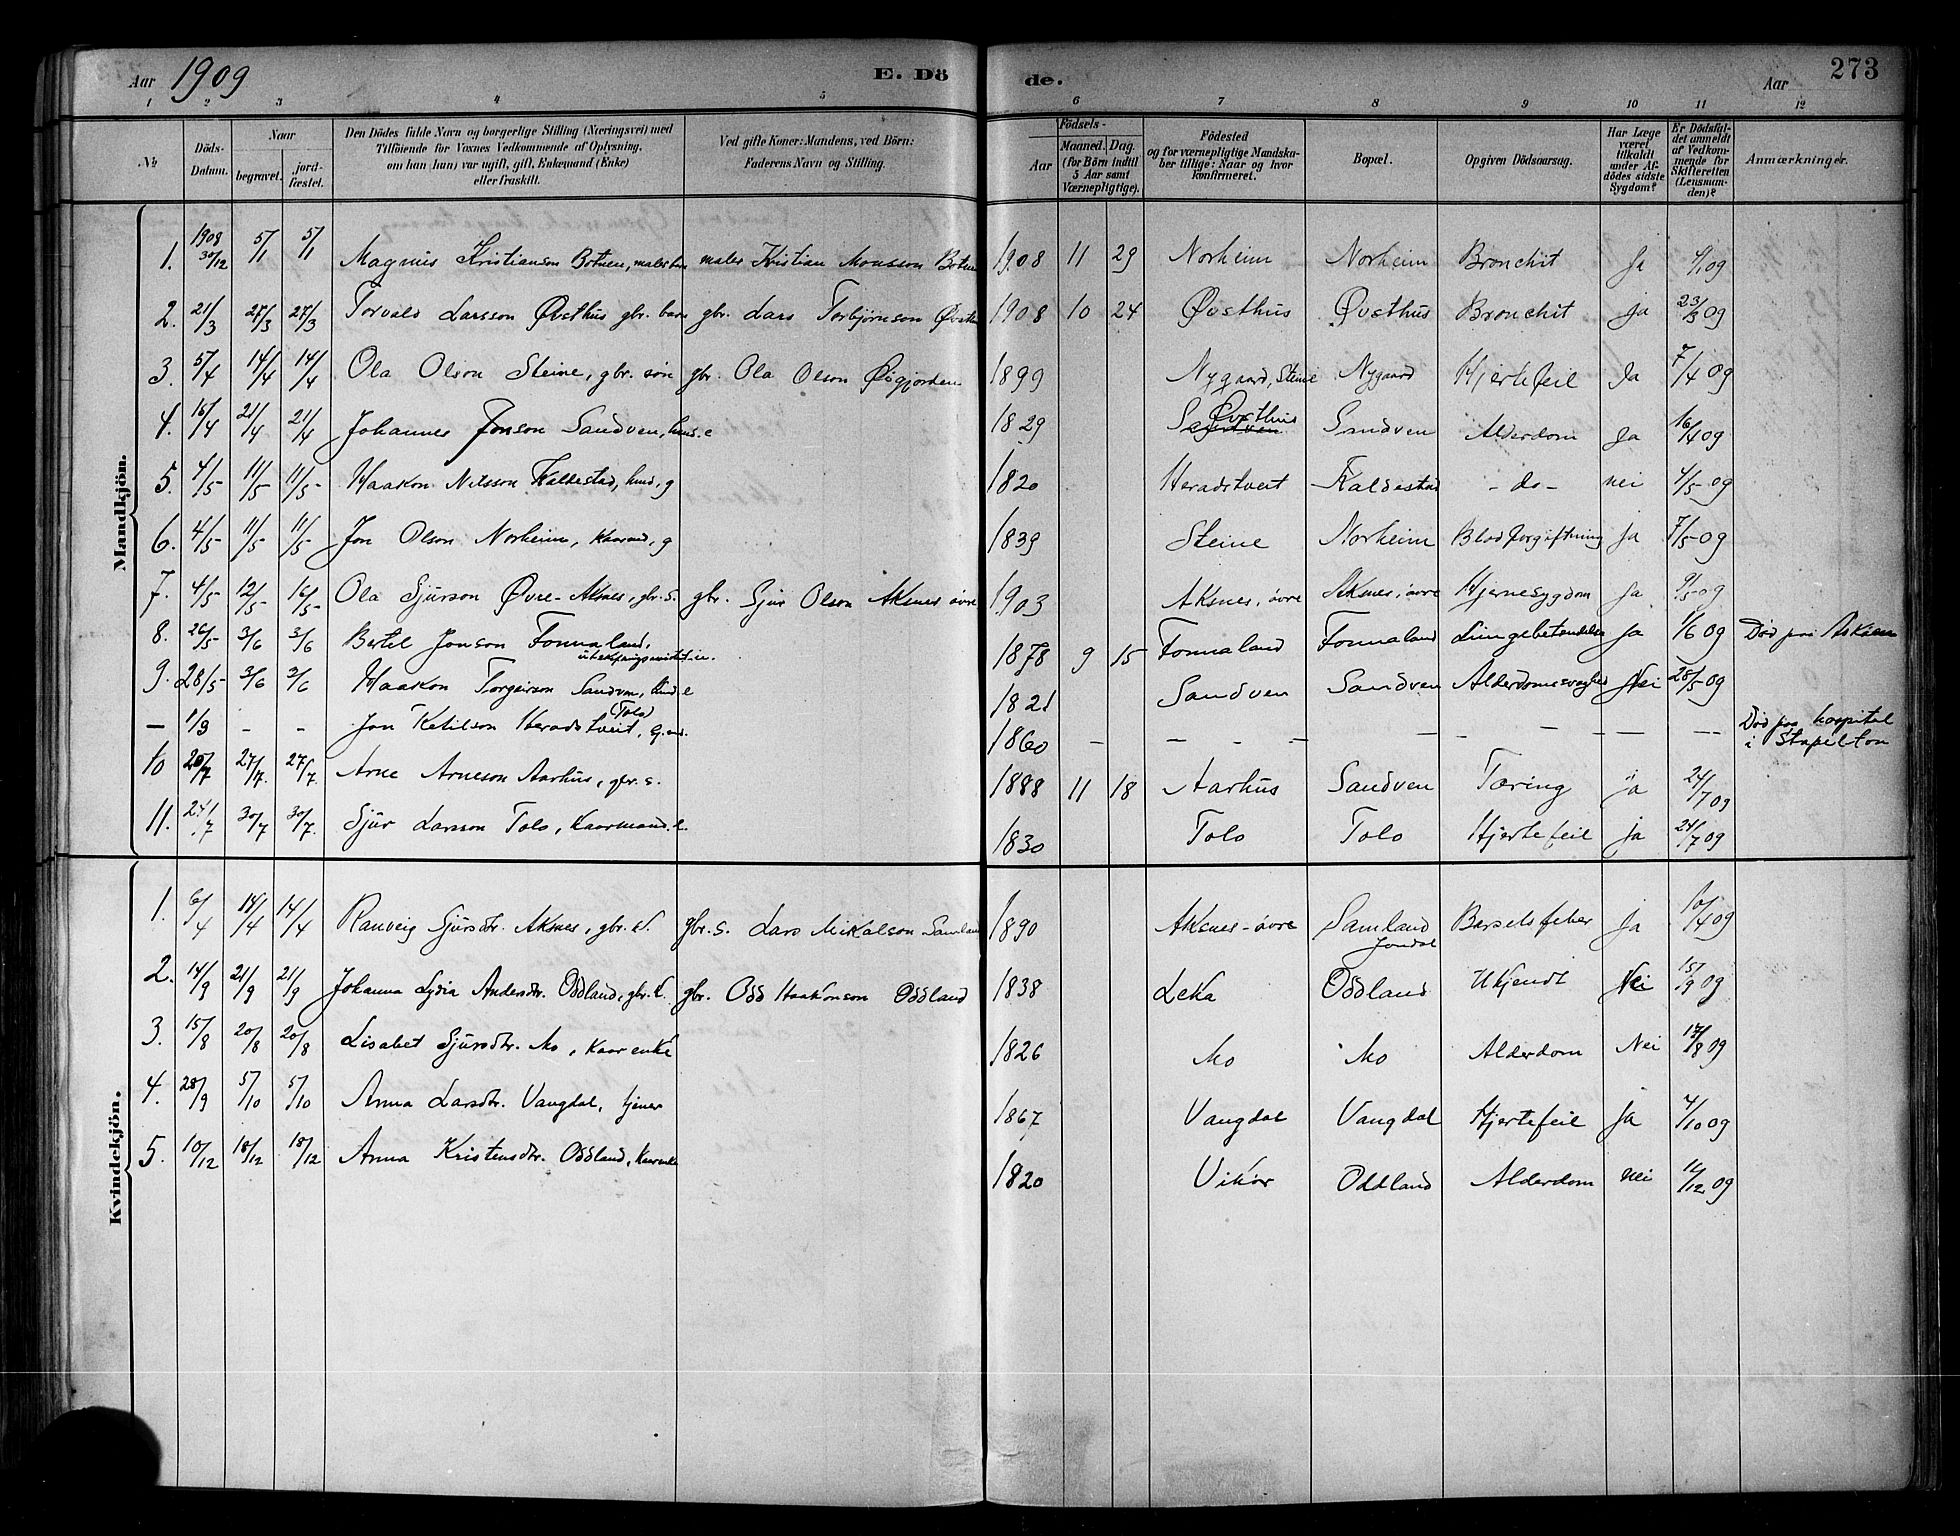 Aar 1909 E. Dö de. Aar 273
1 2 3 4 5 6 7 8 9 10 11 12
№
Döds-Datum.
Naar
begravet.
jord-fæstet.
Den Dödes fulde Navn og borgerlige Stilling (Næringsvei) med
Tilföiende for Voxnes Vedkommende af Oplysning,
om han (hun) var ugift, gift, Enkemand (Enke)
eller fraskilt.
Ved gifte Koner: Mandens, ved Börn:
Faderens Navn og Stilling.
Födsels-
Aar
Maaned. Dag.
(for Börn indtil
5 Aar samt
Værnepligtige).
Födested
og for værnepligtige Mandska-
ber tillige: Naar og hvor
konfirmeret.
Bopæl.
Opgiven Dödsaarsag.
Har Læge
været
tilkaldt
under Af-
dödes sidste
Sygdom?
Er Dödsfal-
det anmeldt
af Vedkom-
mende for
Skifteretten
(Lensman-
den)?
Anmærkninger.
Mandkjön.
1. 1908 30/12 5/1 5/1 Magnus Kristianson Botnen, maler maler Kristian Monsson 1908 11 29 Norheim Norheim Bronchit Ja 4/1 09
2. 21/3 27/3 27/3 Torvald Larsson Øvsthus gbr. barn gbr. Lars Torbjørnson 1908 10 24 Øvsthus Øvsthus Bronchit Ja 23/3 09
3. 5/4 14/4 14/4 Ola Olson Steine, gbr. søn gbr. Ola Olson Øvgjorden 1899 Nygaard, Steine Nygaard Hjertefeil Ja 7/4 09
4. 15/4 21/4 21/4 Johannes Jonson Sandven, hus. e 1829 Øvsthus Sandven Alderdom Ja 16/4 09
5. 4/5 11/5 11/5 Haakon Nilsson Kaldestad, hus, g 1820 Heradstveit Kaldestad - do - nei 4/5 09
6. 4/5 11/5 11/5 Jon Olson Norheim, Kaarm, g 1839 Steine Norheim Blodforgiftning Ja 7/5 09
7. 4/5 12/5 16/5 Ola Sjurson Øvre-Aksnes, gbr. s. gbr. Sjur Olson Aksnes øvre 1903 Aksnes, øvre Aksnes, øvre Hjernesygdom Ja 9/5 09
8. 26/5 3/6 3/6 Bertel Jonson Fonnaland, 1878 9 15 Fonnaland Fonnaland Lungebetendelse Ja 1/6 09 Død paa Askøen
9. 28/5 3/6 3/6 Haakon Torgeirson Sandven, hus e 1821 Sandven Sandven Alderdomssvaghed Nei 28/5 09
— 1/3 - - Jon Ketilson Heradstveit, (Tolo) 1860 — — — — — — — Død paa hospital
i Stapelton
10 20/7 27/7 27/7 Arne Arneson Aarhus, gbr. s. 1888 11 18 Aarhus Sandven Tæring ja 24/7 09
11. 24/7 30/7 30/7 Sjur Larsson Tolo, Kaarmand. e. 1830 Tolo Tolo Hjertefeil ja 24/7 09
Kvindekjön.
1. 6/4 14/4 14/4 Ranveig Sjursdtr. Aksnes, gbr. k. gbr. s. Lars Mikalson Samland 1890 Aksnes-øvre Samland Jondal Barselsfeber Ja 10/4 09
2. 14/9 21/9 21/9 Johanna Lydia Andersdtr. Oddland, gbr. k. gbr. Odd Haakonson Oddland 1838 Leka Oddland Ukjendt Nei 15/9 09
3. 15/8 20/8 20/8 Lisabet Sjursdtr. Mo, Kaarenke 1826 Mo Mo Alderdom Nei 17/8 09
4. 28/9 5/10 5/10 Anna Larsdtr. Vangdal, tjener 1867 Vangdal Vangdal Hjertefeil Ja 4/10 09
5. 10/12 18/12 18/12 Anna Kristensdtr. Oddland, Kaarenke 1820 Vikør Oddland Alderdom nei 12/12 09